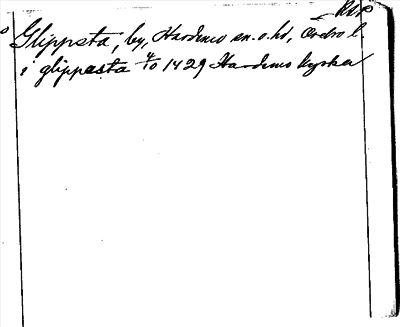 RAP
Glippsta, by, Hardemo sn. o. hd, Örebro l.
i glippasta 4/10 1429 Hardemo kyrka